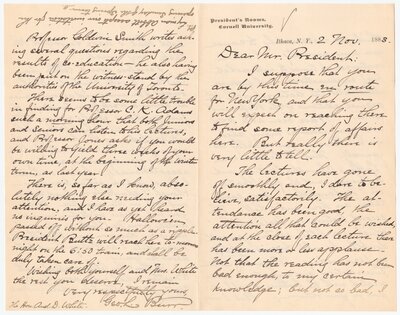 President's Rooms,
Cornell University.
Ithaca, N. Y., 2 Nov. 1883.
Dear Mr. President:
I suppose that you
are by this time en route
for New York, and that you
will expect on reaching there
to find some report of affairs
here. But really there is
very little to tell.
The lectures have gone
off smoothly and, I dare to be-
lieve, satisfactorily. The at-
tendance has been good, the
attention all that could be wished,
and at the close of each lecture there
has been more or less applause.
Not that the reading has not been
bad enough, to my certain
knowledge; but not so bad, I
Professor Goldwin Smith writes ask-
ing several questions regarding the
results of co-education — he also having
been put on the witness-stand by the
authorities of the University of Toronto.
There seems to be some little trouble
in finding for Professor C. K. Adams
such a morning hour that both Juniors
and Seniors can listen to his lectures,
and Professor Jones asks if you would
be willing to yield three hours of your
own time, at the beginning of the winter
term, as last year.
There is, so far as I know, abso-
lutely nothing else needing your
attention, and I dare say we shall hear
no inquiries for you. Hallowe'en
passed off without so much as a regular
President Cutts will reach here to-morrow
night on the 6:30 train, and will be
duly taken care of.
Wishing both yourself and Mrs. White
the rest you deserve, I remain
Very respectfully yours,
Geo. L. Burr.
To Hon. And. D. White.
Lyman Abbott accepts an invitation for the
opening Sunday of the Spring term.